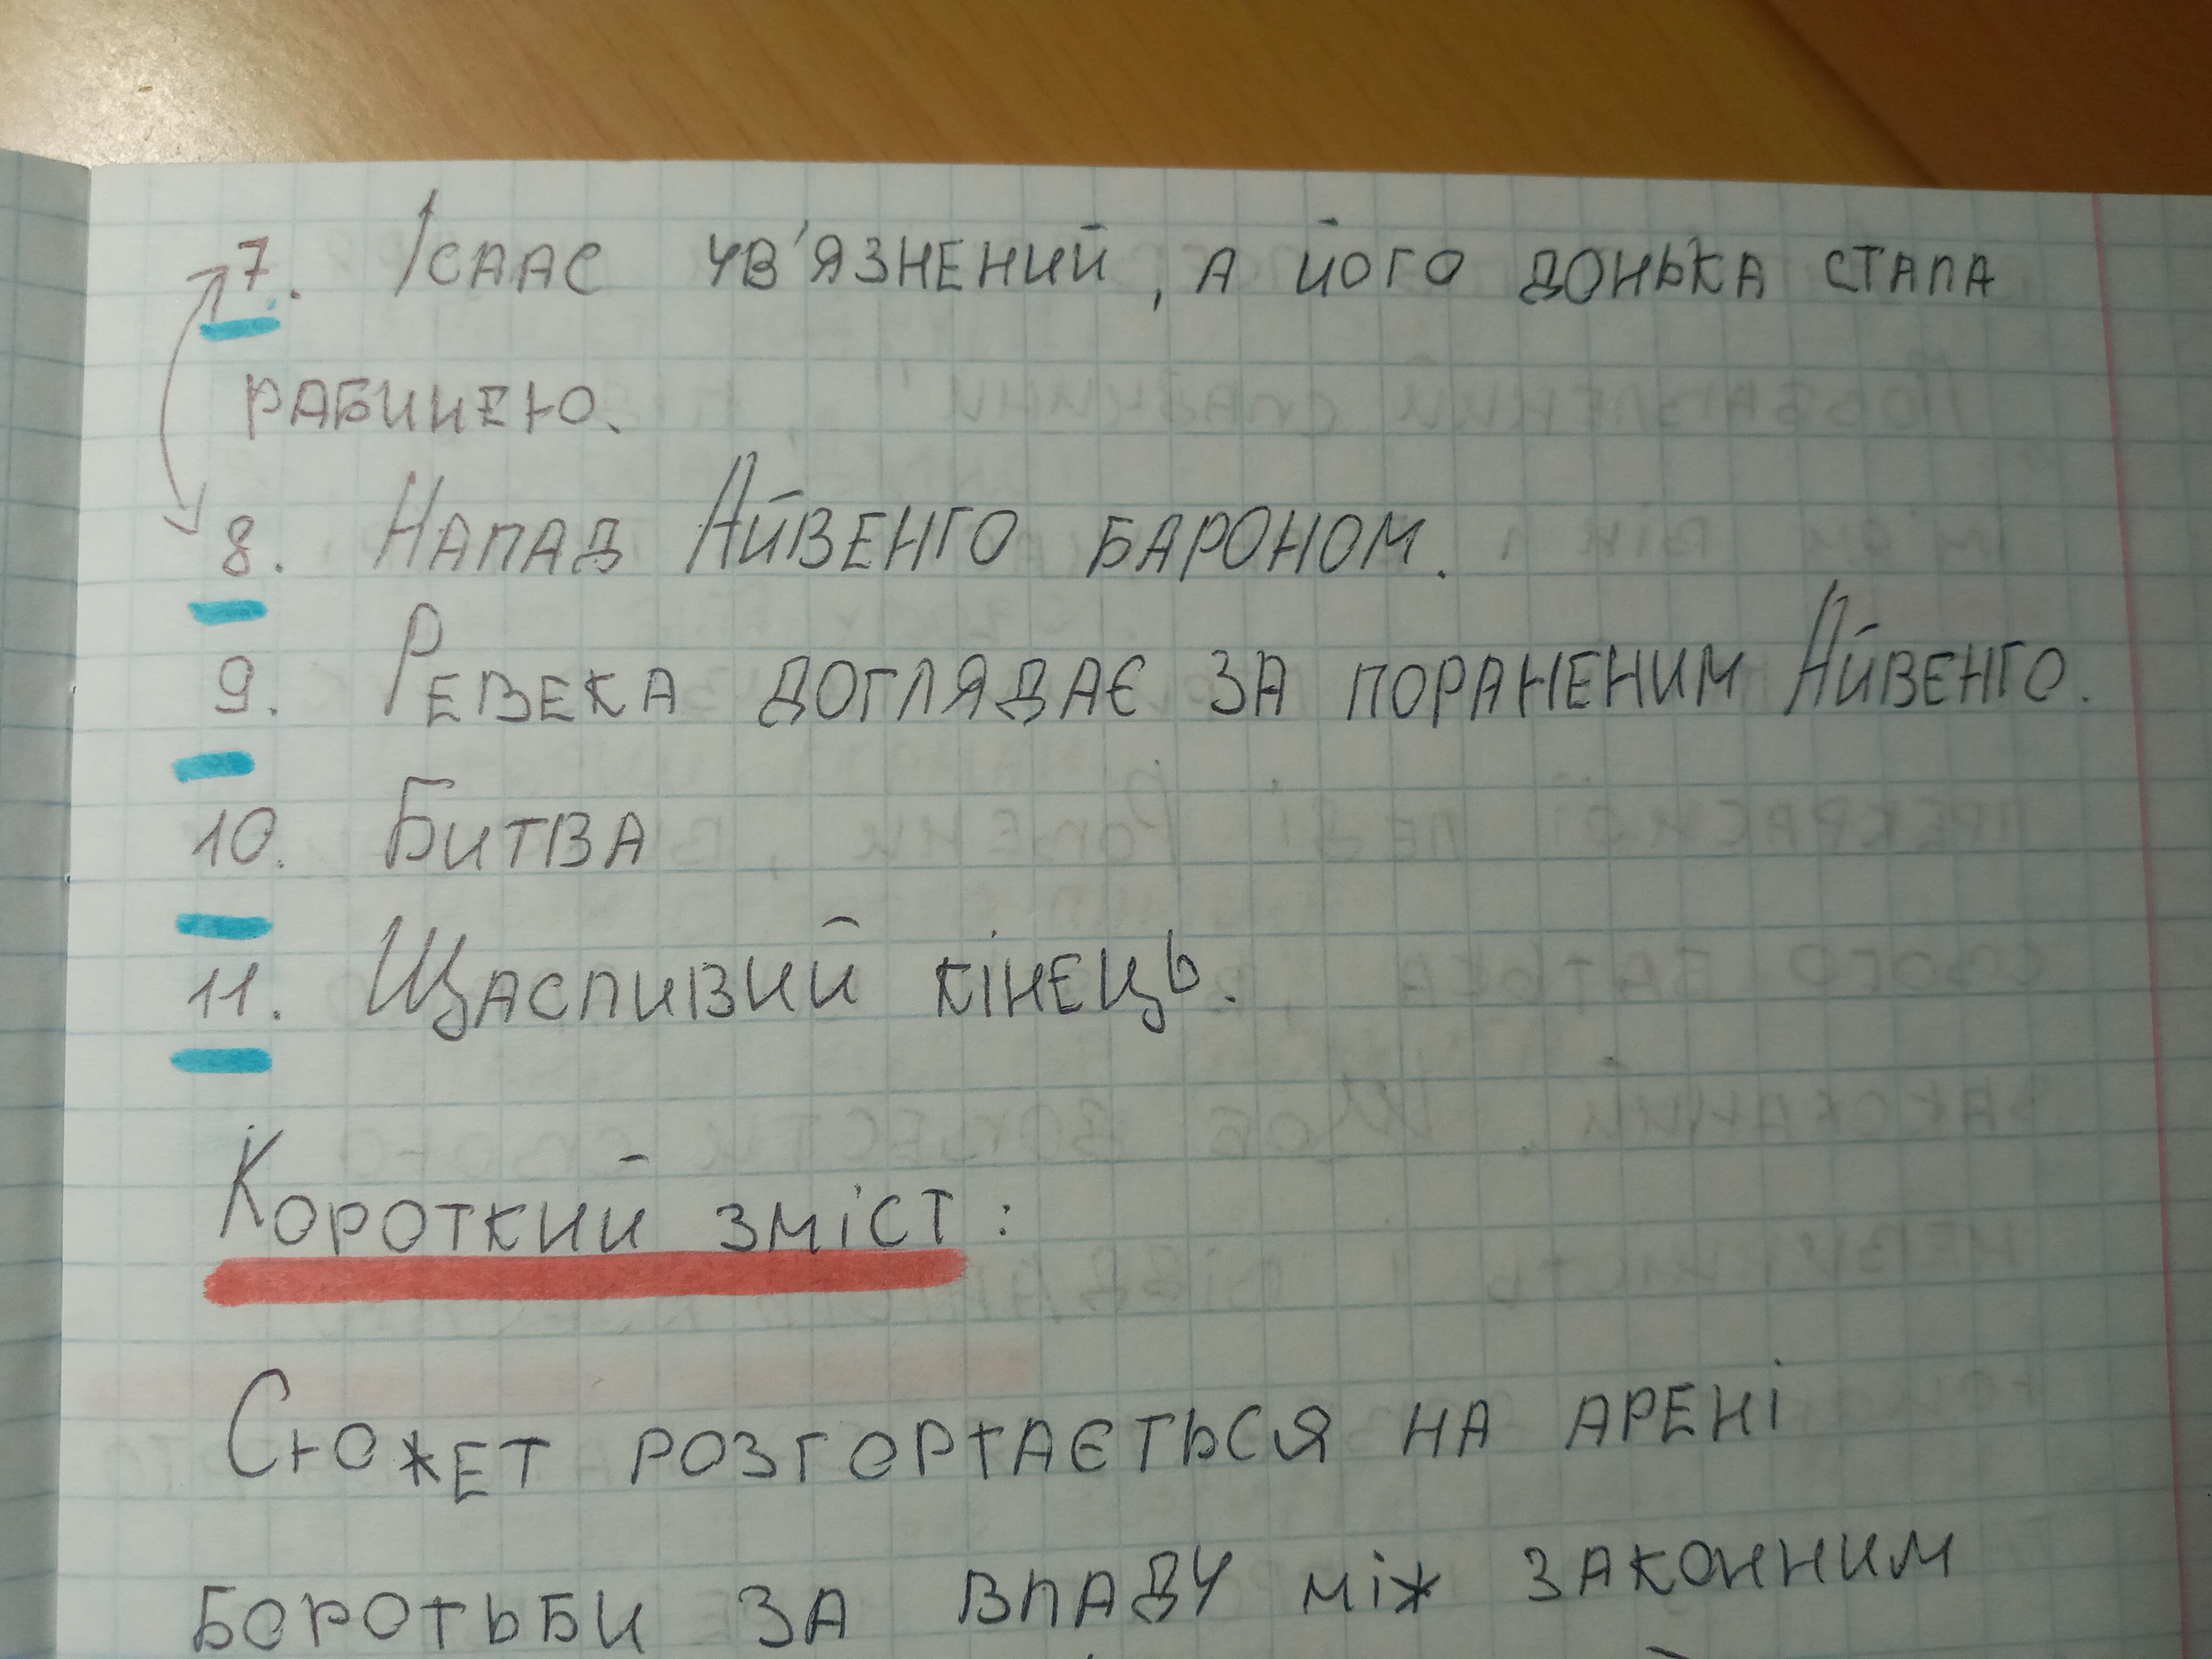 7. Ісаас ув'язнений, а його донька стала
рабинею.
8. Напад Айвенго бароном.
9. Ревека доглядає за пораненим Айвенго.
10. Битва
11. Щасливий кінець.
Короткий зміст:
Сюжет розгортається на арені
боротьби за владу між законним